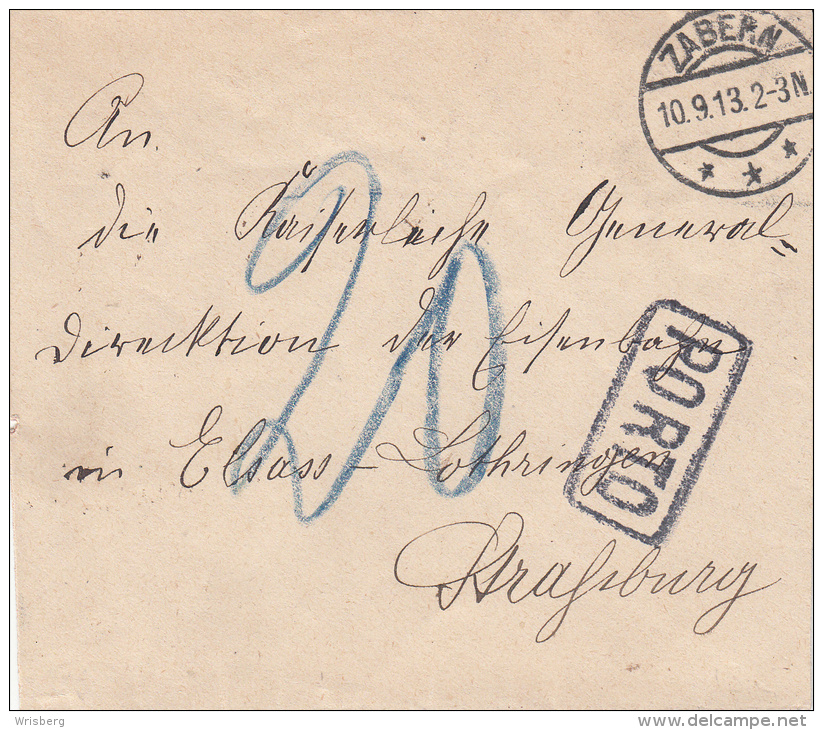 ZABERN
10.9.13.2-3N.
* * *
An
die Kaiserliche General=
Direcktion der Eisenbahn
in Elsass-Lothringen
Straßburg
20
PORTO
Wrisberg
www.delcampe.net